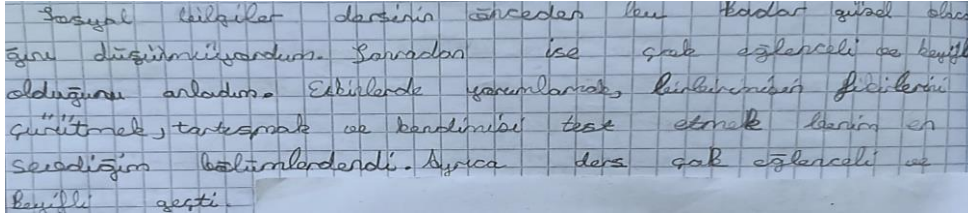 Sosyal bilgiler dersinin önceden bu kadar güzel olaca
ğını düşünmüyordum. Sonradan ise çok eğlenceli ve keyifli
olduğunu anladım. Ekiplerde yorumlamak, birbirimizin fikirlerini
çürütmek, tartışmak ve kendimizi test etmek benim en
sevdiğim bölümlerdendi. Ayrıca ders çok eğlenceli ve
keyifli geçti.